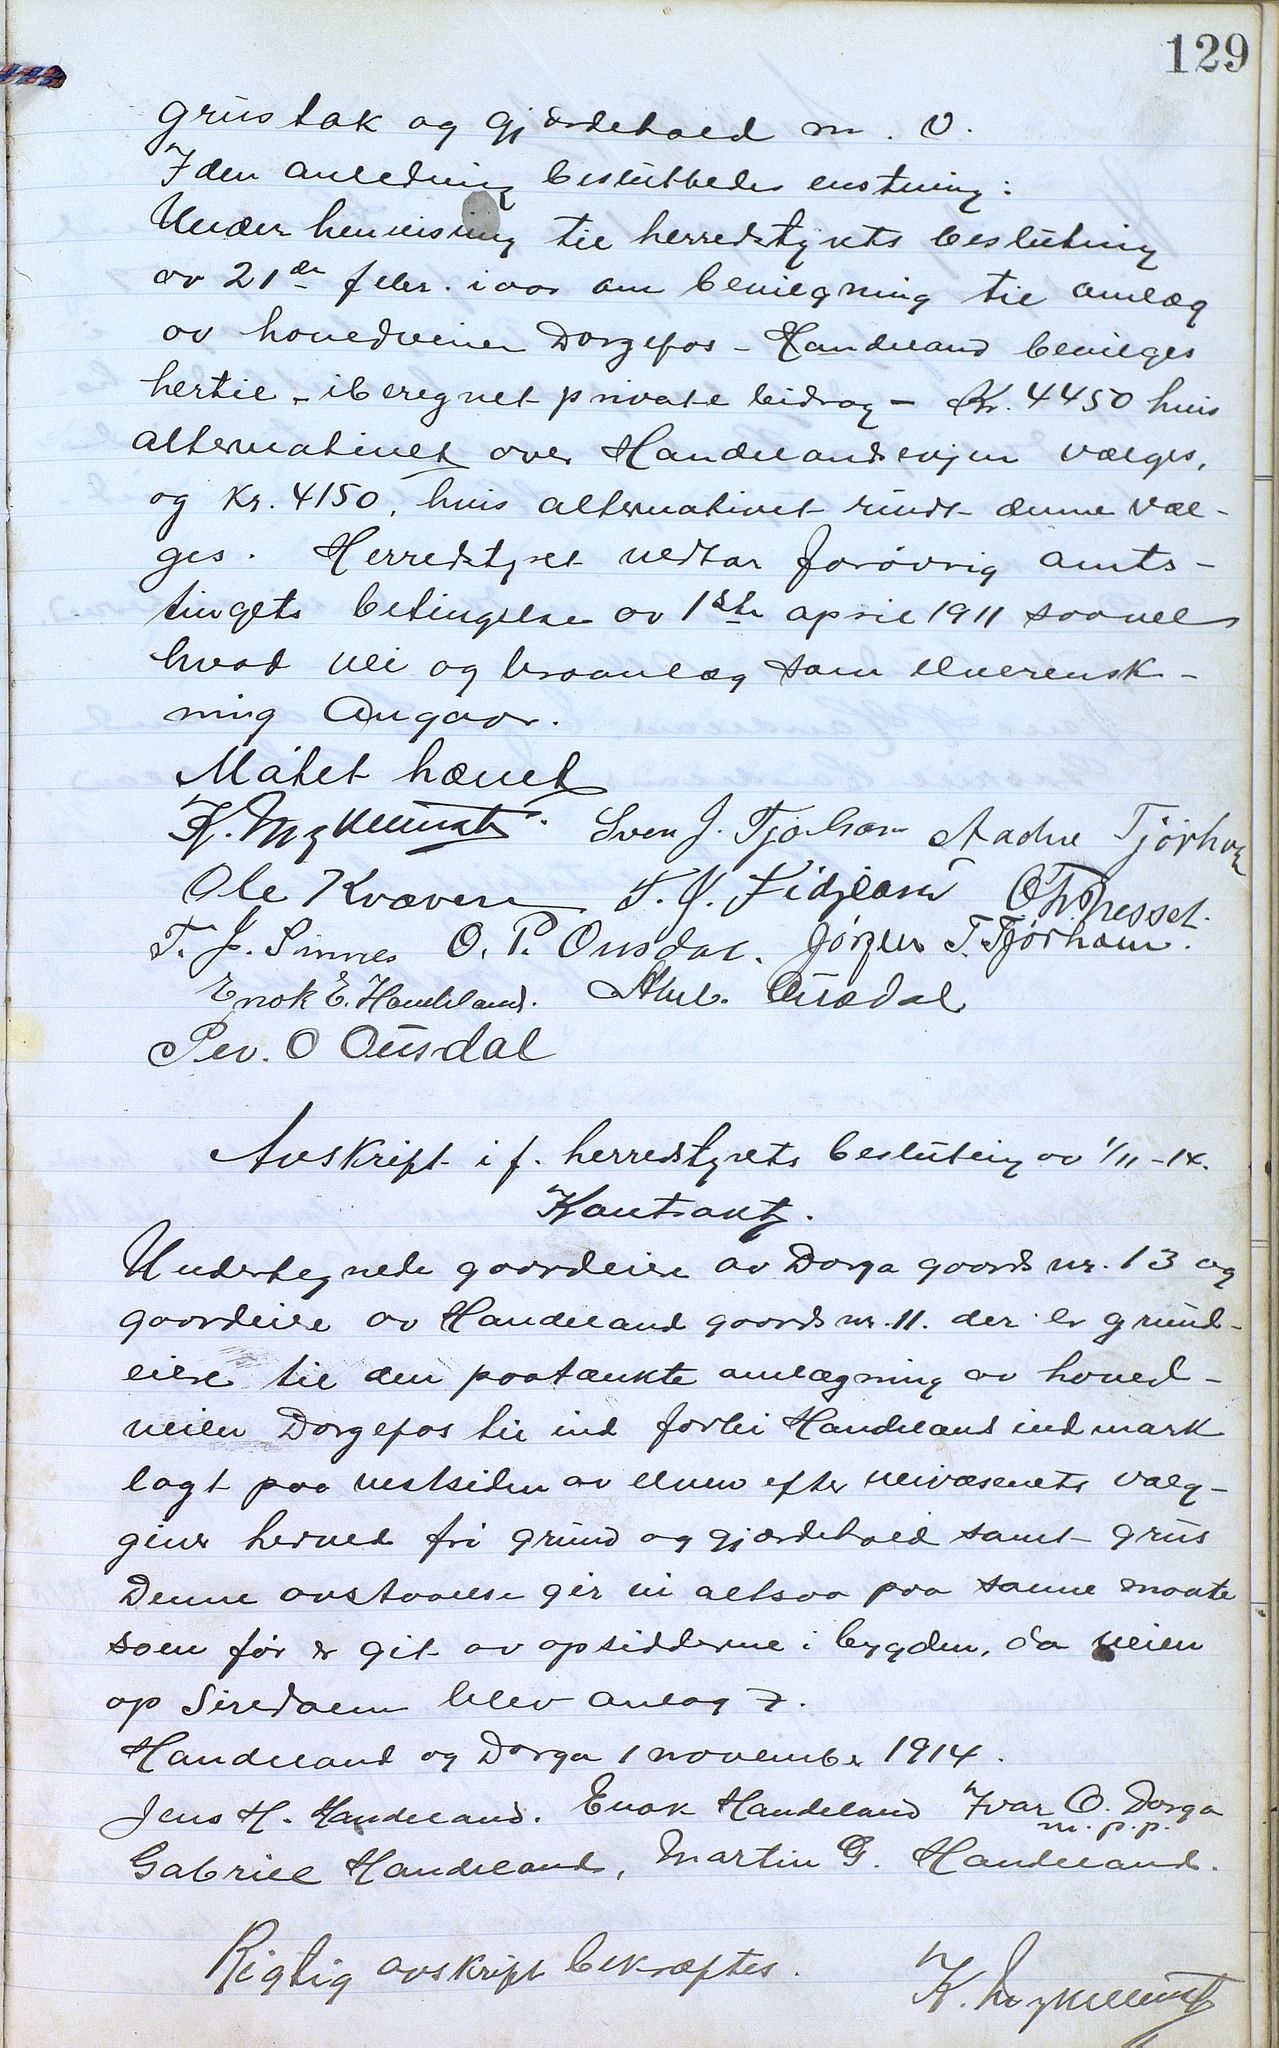 129
grustak og gjærdehold m. v.
I den anledning besluttedes enstemig:
Under henvisning til herredstyrets beslutning
av 21de febr. iaar om bevilgning til anlæg
av hovedveien Dorgefos - Handeland bevilges
hertil - iberegnet private bidrag - Kr. 4450 hvis
alternativet over Handelandseijen vælges,
og Kr. 4150, hvis alternativet rundt denne væl-
ges. Herredstyret vedtar forøvrig amts-
tingets betingelse av 1ste april 1911 saavel
hvad vei og broanlæg som elverensk-
ning angaar.
Møtet hævet
K. Sven J. Tjørhom Aadne Tjørhom
Ole Kvæven T. O. Fidjeland O. Tb. Tnesset.
T. J. Sinnes O. P. Ousdal. Jørgen T. Tjørhom.
Enok E. Handeland. Ousdal
Pev. O Ousdal
Avskript i f. herredstyrets beslutning av 1/11-14.
Kontrakt.
Undertegnede gaardeiere av Dorga gaards nr. 13 og
gaardeiere av Handeland gaards nr. 11. der er grund-
eiere til den paatænkte omlægning av hoved-
veien Dorgefos til ind forbi Handeland indmark
lagt paa vestsiden av elven efter veivæsenets valg -
giver herved fri grund og gjærdehold samt grus
Denne avstaaelse gir vi altsaa paa samme maate
som før er git av opsidderne i bygden, da veien
op Siredalen blev anlagt.
Handeland og Dorga 1 november 1914.
Jens H. Handeland. Enok Handeland Ivar O. Dorga
m. p. p.
Gabriel Handeland, Martin G. Handeland.
Rigtig avskript bekræftes.
K.